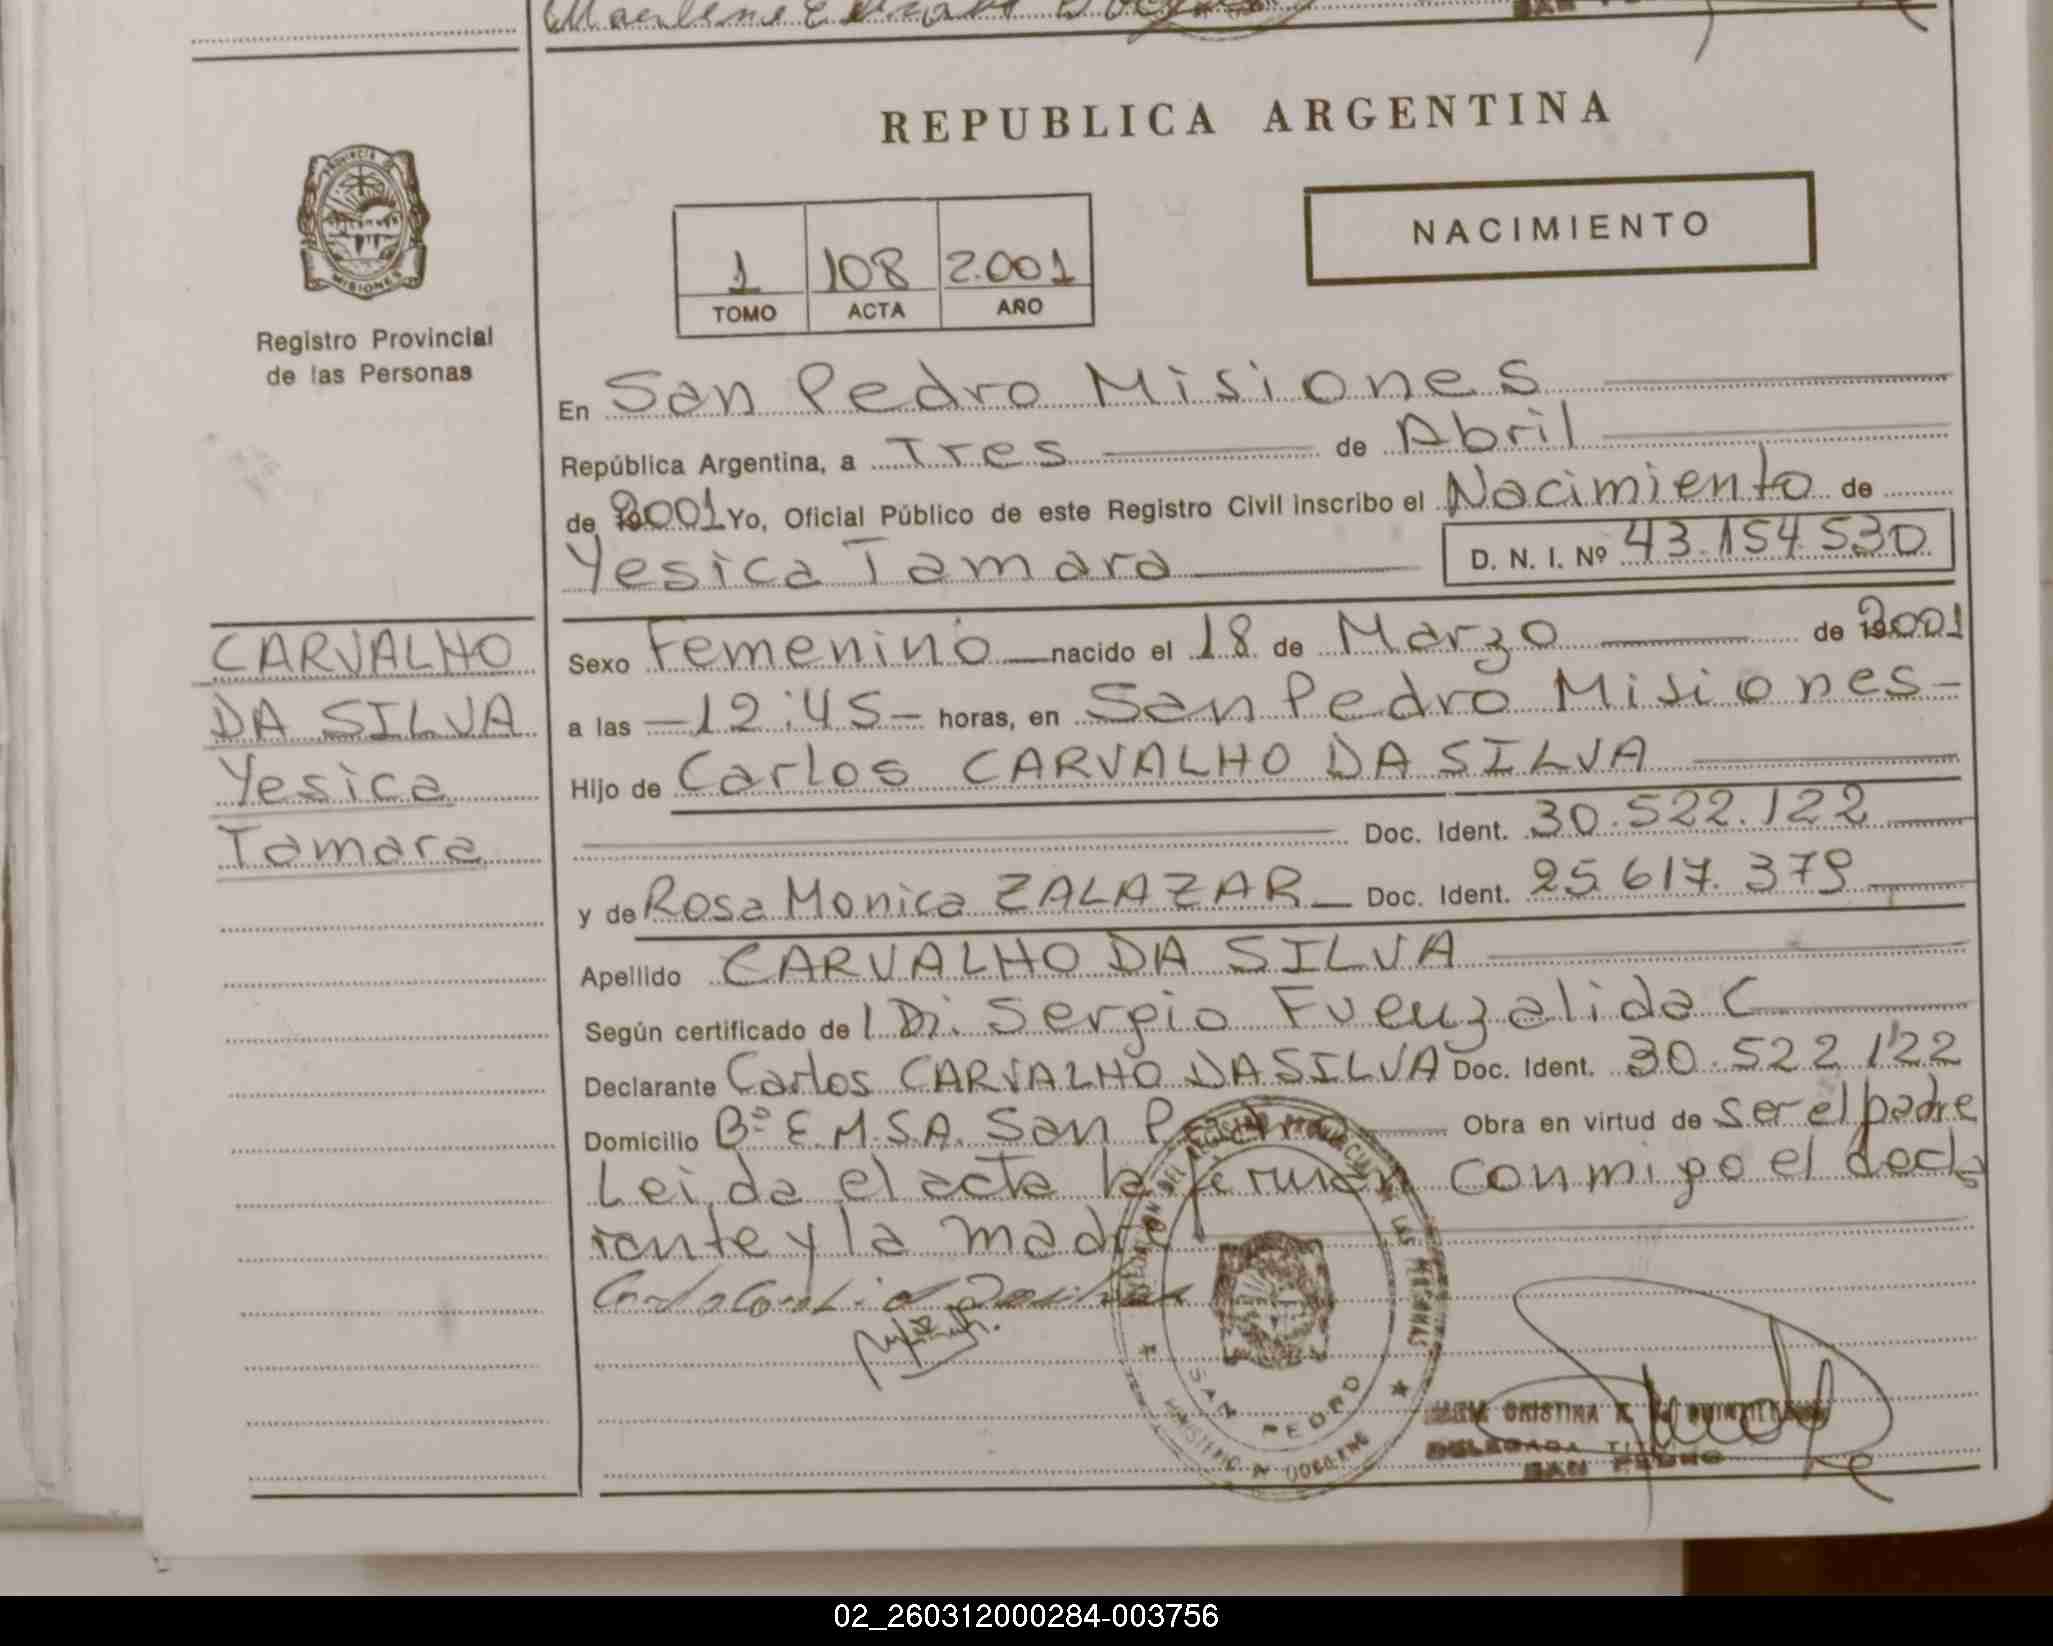 REPUBLICA ARGENTINA
PROVINCIA DE
MISIONES
Registro Provincial
de las Personas
NACIMIENTO
1 108 2.001
TOMO ACTA AÑO
En San Pedro Misiones
República Argentina, a Tres de Abril
de 2001 Yo, Oficial Público de este Registro Civil inscribo el Nacimiento de
Yesica Tamara D. N. I. Nº 43.154.530
CARVALHO
DA SILVA
Yesica
Tamara
Sexo Femenino nacido el 18 de Marzo de 2001
a las 12:45 horas, en San Pedro Misiones
Hijo de Carlos CARVALHO DA SILVA
Doc. Ident. 30.522.122
y de Rosa Monica ZALAZAR Doc. Ident. 25.617.379
Apellido CARVALHO DA SILVA
Según certificado de Dr. Sergio Fuenzalida C
Declarante Carlos CARVALHO DA SILVA Doc. Ident. 30.522.122
Domicilio Bº E.M.S.A. San Pedro Obra en virtud de ser el padre
Leida el acta la firman conmigo el decla
rante y la madre
SAN PEDRO
CRISTINA
DELEGADA TITULAR
SAN PEDRO
02_260312000284-003756